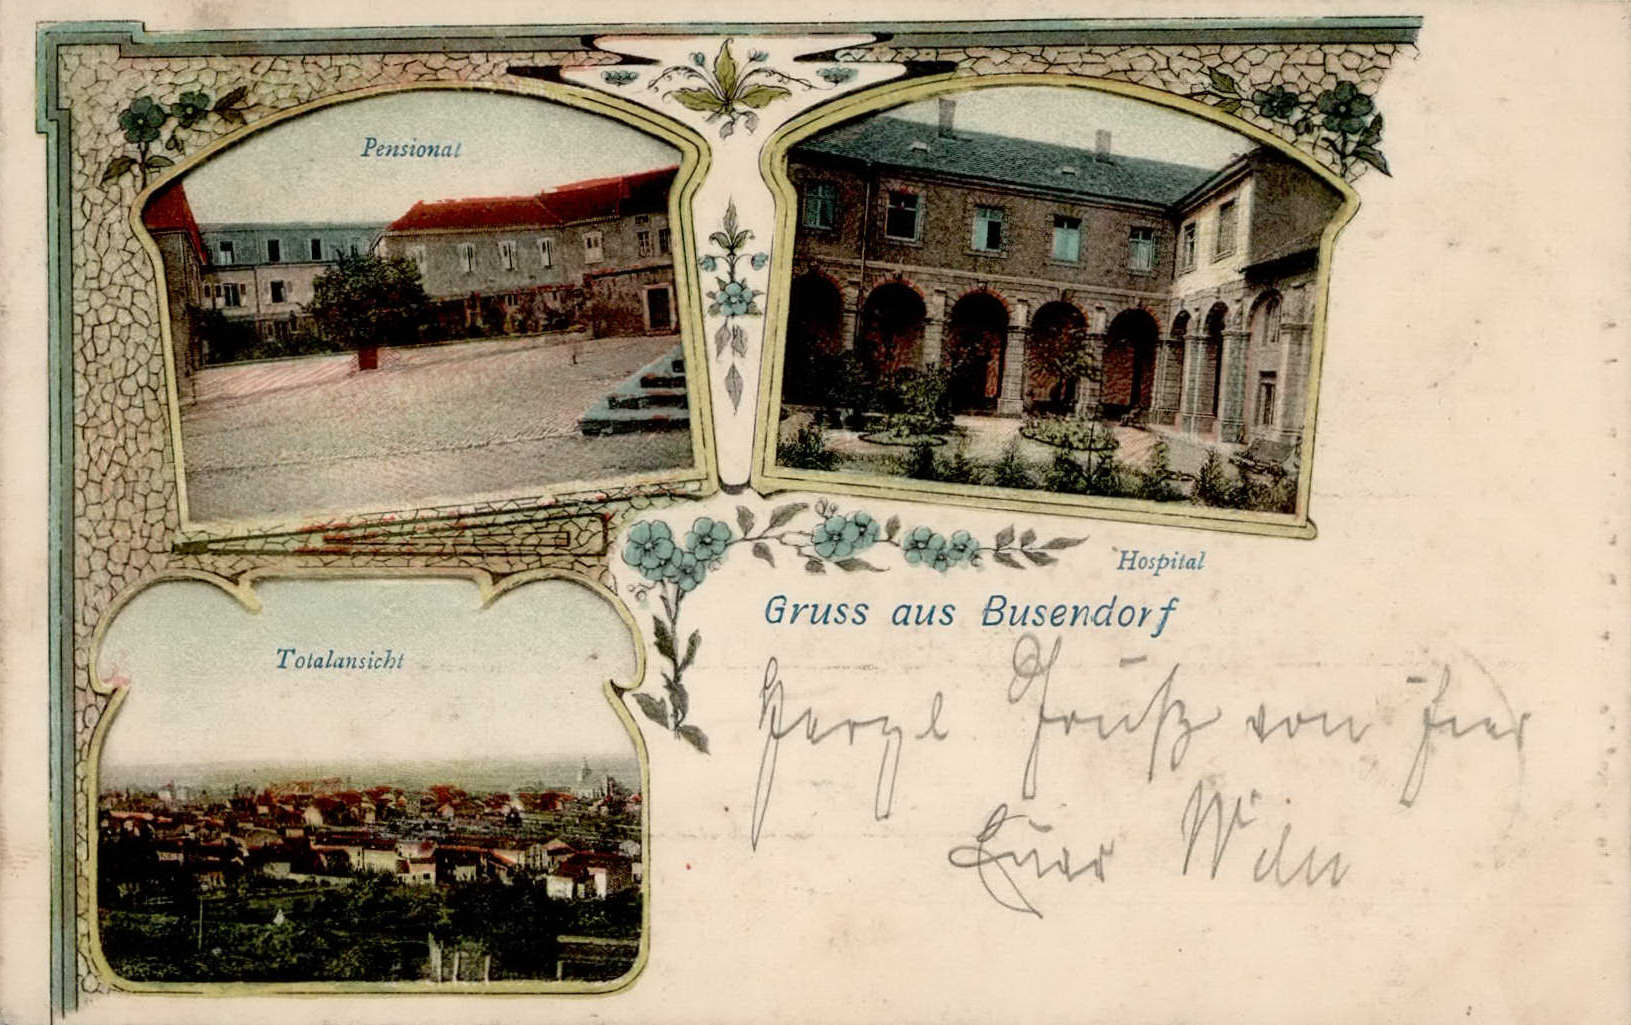 Pensionat
Hospital
Gruss aus Busendorf
Totalansicht
Herzl. Gruß von hier
Euer